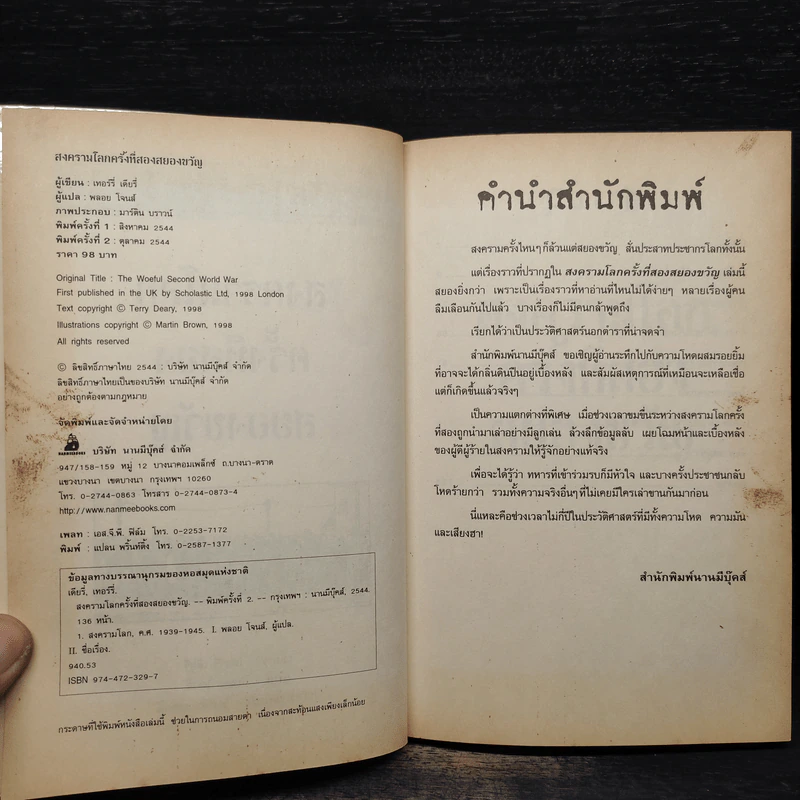 สงครามโลกครั้งที่สองสยองขวัญ
ผู้เขียน : เทอร์รี่ เดียรี่
ผู้แปล : พลอย โจนส์
ภาพประกอบ : มาร์ติน บราวน์
พิมพ์ครั้งที่ 1 : สิงหาคม 2544
พิมพ์ครั้งที่ 2 : ตุลาคม 2544
ราคา 98 บาท
Original Title : The Woeful Second World War
First published in the UK by Scholastic Ltd, 1998 London
Text copyright © Terry Deary, 1998
Illustrations copyright © Martin Brown, 1998
All rights reserved
© ลิขสิทธิ์ภาษาไทย 2544 : บริษัท นานมีบุ๊คส์ จำกัด
ลิขสิทธิ์ภาษาไทยเป็นของบริษัท นานมีบุ๊คส์ จำกัด
อย่างถูกต้องตามกฎหมาย
จัดพิมพ์และจัดจำหน่ายโดย
บริษัท นานมีบุ๊คส์ จำกัด
947/158-159 หมู่ 12 บางนาคอมเพล็กซ์ ถ.บางนา-ตราด
แขวงบางนา เขตบางนา กรุงเทพฯ 10260
โทร. 0-2744-0863 โทรสาร 0-2744-0873-4
http://www.nanmeebooks.com
เพลท : เอส.จี.พี. ฟิล์ม โทร. 0-2253-7172
พิมพ์ : แปลน พริ้นท์ติ้ง โทร. 0-2587-1377
ข้อมูลทางบรรณานุกรมของหอสมุดแห่งชาติ
เดียรี่, เทอร์รี่.
สงครามโลกครั้งที่สองสยองขวัญ. -- พิมพ์ครั้งที่ 2. -- กรุงเทพฯ : นานมีบุ๊คส์, 2544.
136 หน้า.
1. สงครามโลก, ค.ศ. 1939-1945. I. พลอย โจนส์, ผู้แปล.
II. ชื่อเรื่อง.
940.53
ISBN 974-472-329-7
กระดาษที่ใช้พิมพ์หนังสือเล่มนี้ ช่วยในการถนอมสายตา เนื่องจากสะท้อนแสงเพียงเล็กน้อย
คำนำสำนักพิมพ์
สงครามครั้งไหนๆ ก็ล้วนแต่สยองขวัญ สั่นประสาทประชากรโลกทั้งนั้น
แต่เรื่องราวที่ปรากฏใน สงครามโลกครั้งที่สองสยองขวัญ เล่มนี้
สยองยิ่งกว่า เพราะเป็นเรื่องราวที่หาอ่านที่ไหนไม่ได้ง่ายๆ หลายเรื่องผู้คน
ลืมเลือนกันไปแล้ว บางเรื่องก็ไม่มีคนกล้าพูดถึง
เรียกได้ว่าเป็นประวัติศาสตร์นอกตำราที่น่าจดจำ
สำนักพิมพ์นานมีบุ๊คส์ ขอเชิญผู้อ่านระทึกไปกับความโหดผสมรอยยิ้ม
ที่อาจจะได้กลิ่นดินปืนอยู่เบื้องหลัง และสัมผัสเหตุการณ์ที่เหมือนจะเหลือเชื่อ
แต่ก็เกิดขึ้นแล้วจริงๆ
เป็นความแตกต่างที่พิเศษ เมื่อช่วงเวลาขมขื่นระหว่างสงครามโลกครั้ง
ที่สองถูกนำมาเล่าอย่างมีลูกเล่น ล้วงลึกข้อมูลลับ เผยโฉมหน้าและเบื้องหลัง
ของผู้ดีผู้ร้ายในสงครามให้รู้จักอย่างแท้จริง
เพื่อจะได้รู้ว่า ทหารที่เข้าร่วมรบก็มีหัวใจ และบางครั้งประชาชนกลับ
โหดร้ายกว่า รวมทั้งความจริงอื่นๆ ที่ไม่เคยมีใครเล่าขานกันมาก่อน
นี่แหละคือช่วงเวลาไม่กี่ปีในประวัติศาสตร์ที่มีทั้งความโหด ความมัน
และเสียงฮา!
สำนักพิมพ์นานมีบุ๊คส์